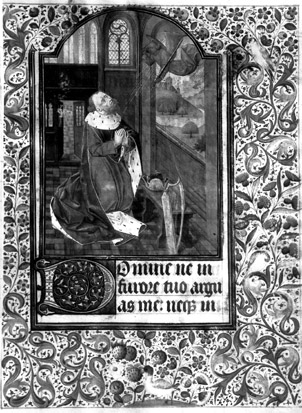 Domine ne in
furore tuo argu
as me: neqz in